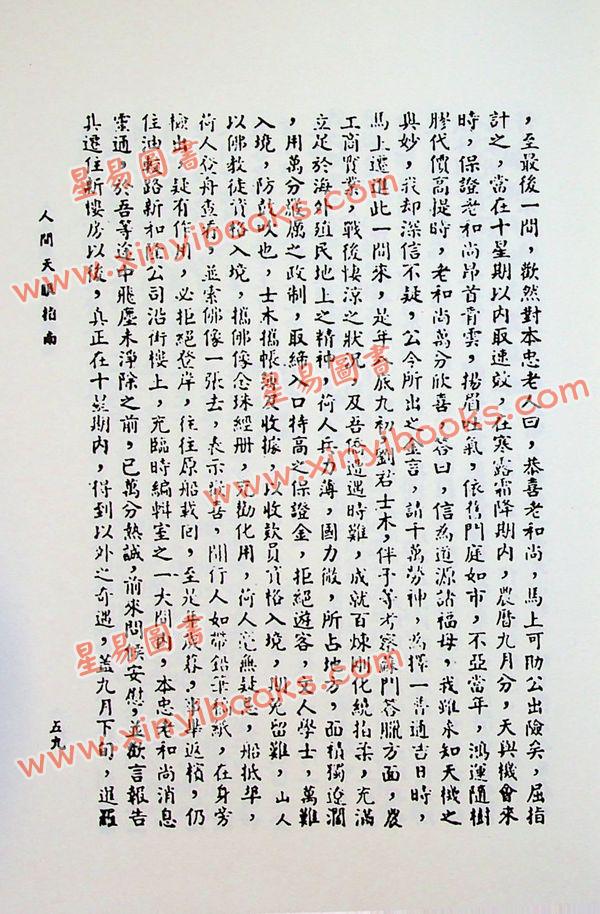 ，至最後一問，歡然對本忠老人曰，恭喜老和尚，馬上可助公出險矣，屈指
計之，當在十星期以內取速效，在寒露霜降期內，農曆九月分，天與機會來
時，保證老和尚昂首青雲，揚眉吐氣，依舊門庭如市，不亞當年，鴻運隨樹
膠代價高提時，老和尚萬分欣喜，答曰，信為道源諸福母，我雖未知天機之
與妙，我却深信不疑，公今所出之金言，請千萬勞神，為擇一普通吉日時，
馬上遷進此一間來，是年八旅九初，劉君士木，伴予等考察蘇門答臘方面，農
工商實業，戰後悽涼之狀況，及吾僑遭遇時難，成就百煉剛化繞指柔，充滿
立足於海外殖民地上之精神，荷人兵力薄，國力微，所占地方，面積獨遼濶
，用萬分嚴厲之政制，取締入口特高之保證金，拒絕遊客，文人學士，萬難
入境，防鼓吹也，士木攜帳簿及收據，以收欵員資格入境，免留難，山人
以佛教徒資格入境，攜佛像念珠經冊，充勸化用，荷人毫無疑忌，船抵埠，
荷人登舟查看，並索佛像一張去，表示歡喜，同行人如帶鉛筆稿紙，在身旁
檢出，疑有作用，必拒絕登岸，往往原船載回，至是年歲暮，返檳，仍
住油較路新和隆公司沿街樓上，充臨時編輯室之一大間內，本忠老和尚消息
靈通，於吾等途中飛塵未淨除之前，已萬分熱誠，前來問候安慰，並歡言報告
其遷住新樓房以後，真正在十星期內，得到以外之奇遇，蓋九月下旬，進
人間天眼指南
五九
星易圖書
www.xinyibooks.com
星易圖書
www.xinyibooks.com
星易圖書
www.xinyibooks.com
星易圖書
www.xinyibooks.com